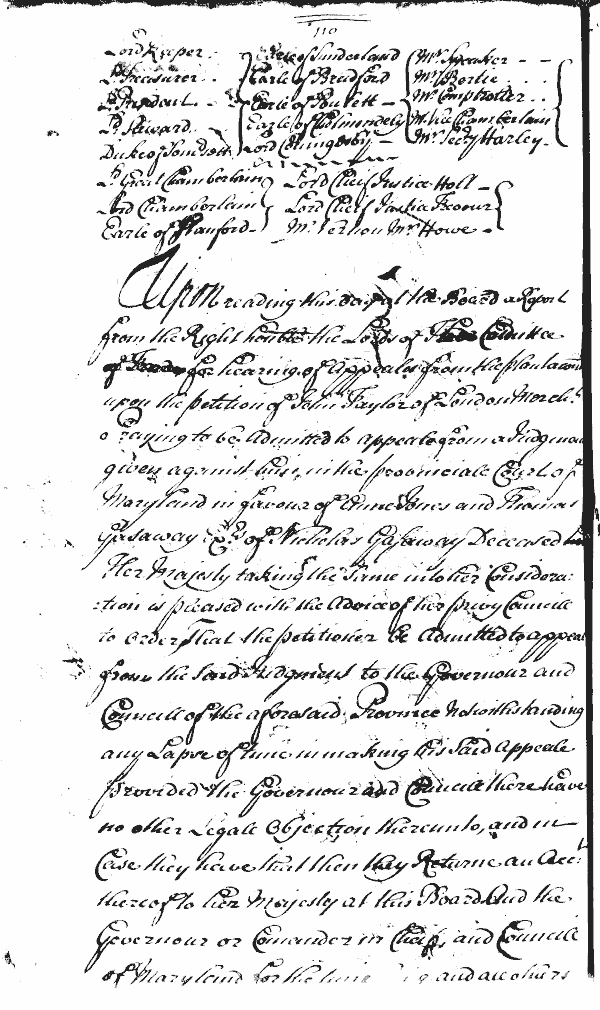 110
Lord Keeper Earle of Sunderland Mr Speaker
Ld Treasurer Earle of Bradford Mr Bertie
Ld President Earle of Poulett Mr Comptroller
Ld Steward Earle of Cholmondely Mr Vice Chamberlain
Duke of Somersett Lord Coningesby Mr Secry Harley
Ld Great Chamberlain Lord Cheif Justice Holt
Lord Chamberlain Lord Cheif Justice Trevour
Earle of Stanford Mr Vernon Mr Howe
Upon reading this day at the Board a Report
from the Right honble the Lords of Committee
for hearing of Appeales from the plantacons
upon the petition of John Taylor of London Merch.t
praying to be Admitted to appeale from a Judgment
given against him in the provinciale Court of
Maryland in favour of Anne Jones and Thomas
Gasaway Exrs of Nicholas Gasaway Deceased
Her Majesty taking the Same into her Considera:
tion is pleased with the Advice of her privy Councill
to Order That the petitioner be Admitted to appeal
from the said Judgment to the Governour and
Councill of the aforesaid Province Notwithstanding
any Lapse of time in making his Said Appeale
Provided the Governour and Councill there have
no other Legale Objection thereunto, and in
Case they have that then they Returne an Acct
thereof to her Majesty at this Board And the
Governour or Comander in Cheife, and Councill
of Maryland for the time and all others